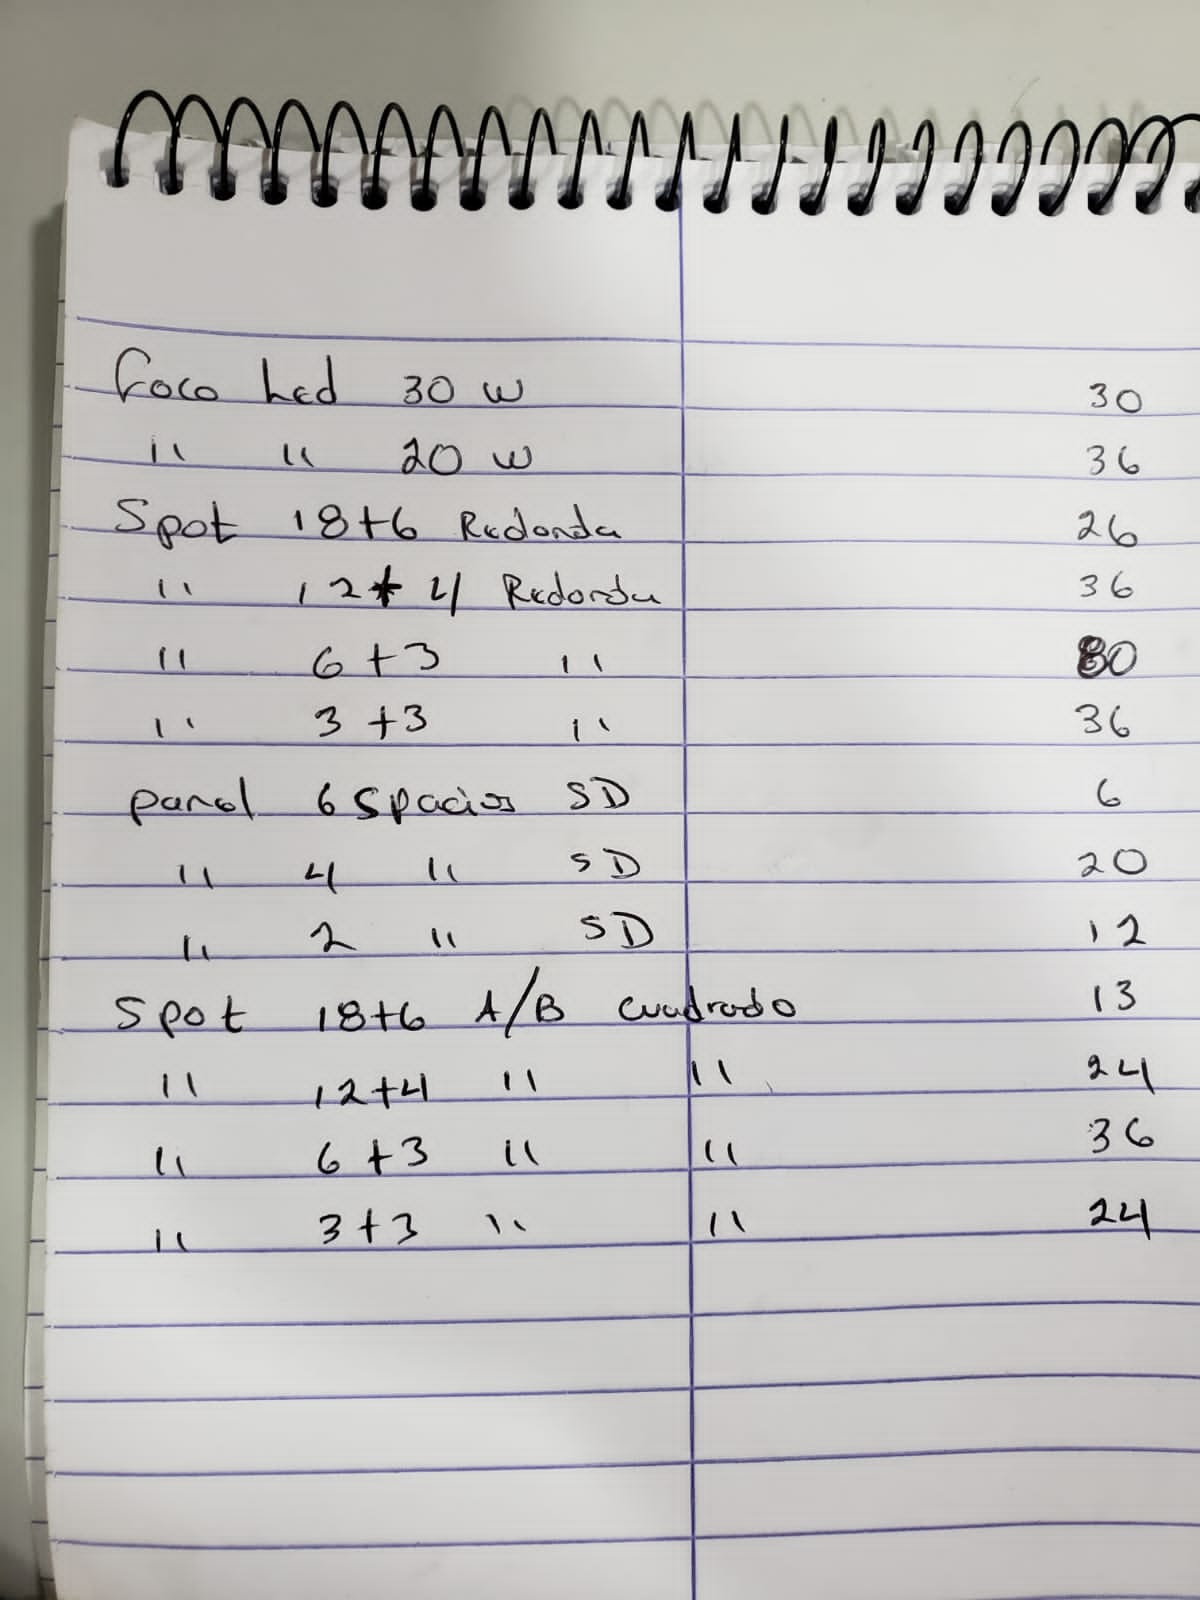 Foco Led 30 W 30
" " 20 W 36
Spot 18+6 Redonda 26
" 12+4 Redonda 36
" 6+3 " 80
" 3+3 " 36
panel 6 Spacios SD 6
" 4 " SD 20
" 2 " SD 12
Spot 18+6 A/B Cuadrado 13
" 12+4 " " 24
" 6+3 " " 36
" 3+3 " " 24